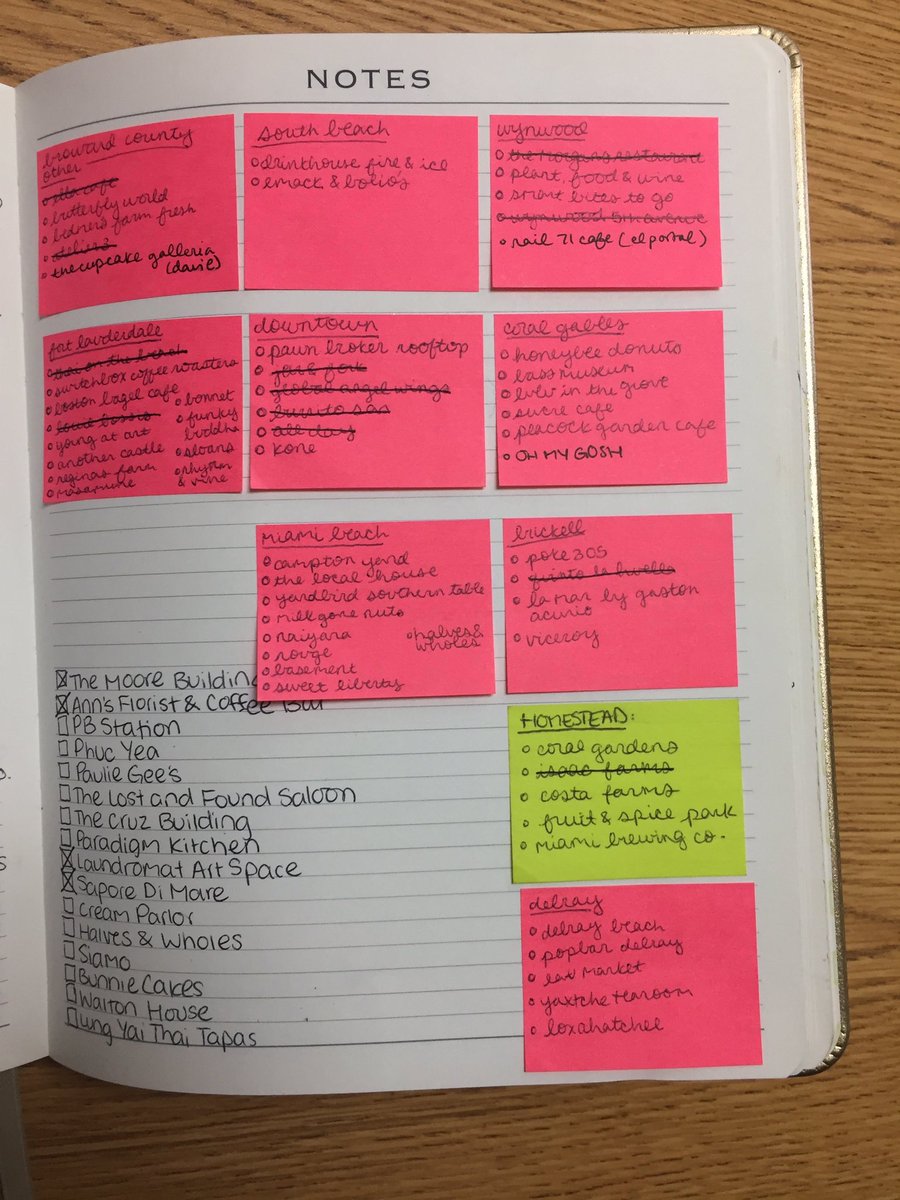 NOTES
broward county
other
butterfly world
bedners farm fresh
the cupcake galleria
(davie)
south beach
drinkhouse fire & ice
emack & bolio's
wynwood
the morgans restaurant
plant, food & wine
smart bites to go
wynwood 5th avenue
rail 71 cafe (el portal)
fort lauderdale
on the beach
switchbox coffee roasters
boston bagel cafe
young at art
another castle
reginas farm
bonnet
funky
buddha
sloans
rhythm
& vine
downtown
pawn broker rooftop
jar & fork
global angel wings
burrito san
all day
kone
coral gables
honeybee donuts
bass museum
in the grove
sucre cafe
peacock garden cafe
OH MY GOSH
miami beach
campton yard
the local house
yardbird southern table
milk gone nuts
naiyara
rouge
basement
sweet liberty
halves &
wholes
brickell
poke 305
quinto la huella
la mar by gaston
acurio
viceroy
The Moore Building
Ann's Florist & Coffee Bar
PB Station
Phuc Yea
Paulie Gee's
The Lost and Found Saloon
The Cruz Building
Paradigm Kitchen
Laundromat Art Space
Sapore Di Mare
Cream Parlor
Halves & Wholes
Siamo
Bunnie Cakes
Walton House
Lung Yai Thai Tapas
HOMESTEAD:
coral gardens
isaac farms
costa farms
fruit & spice park
miami brewing co.
delray
delray beach
popbar delray
eat market
yaxche tearoom
loxahatchee